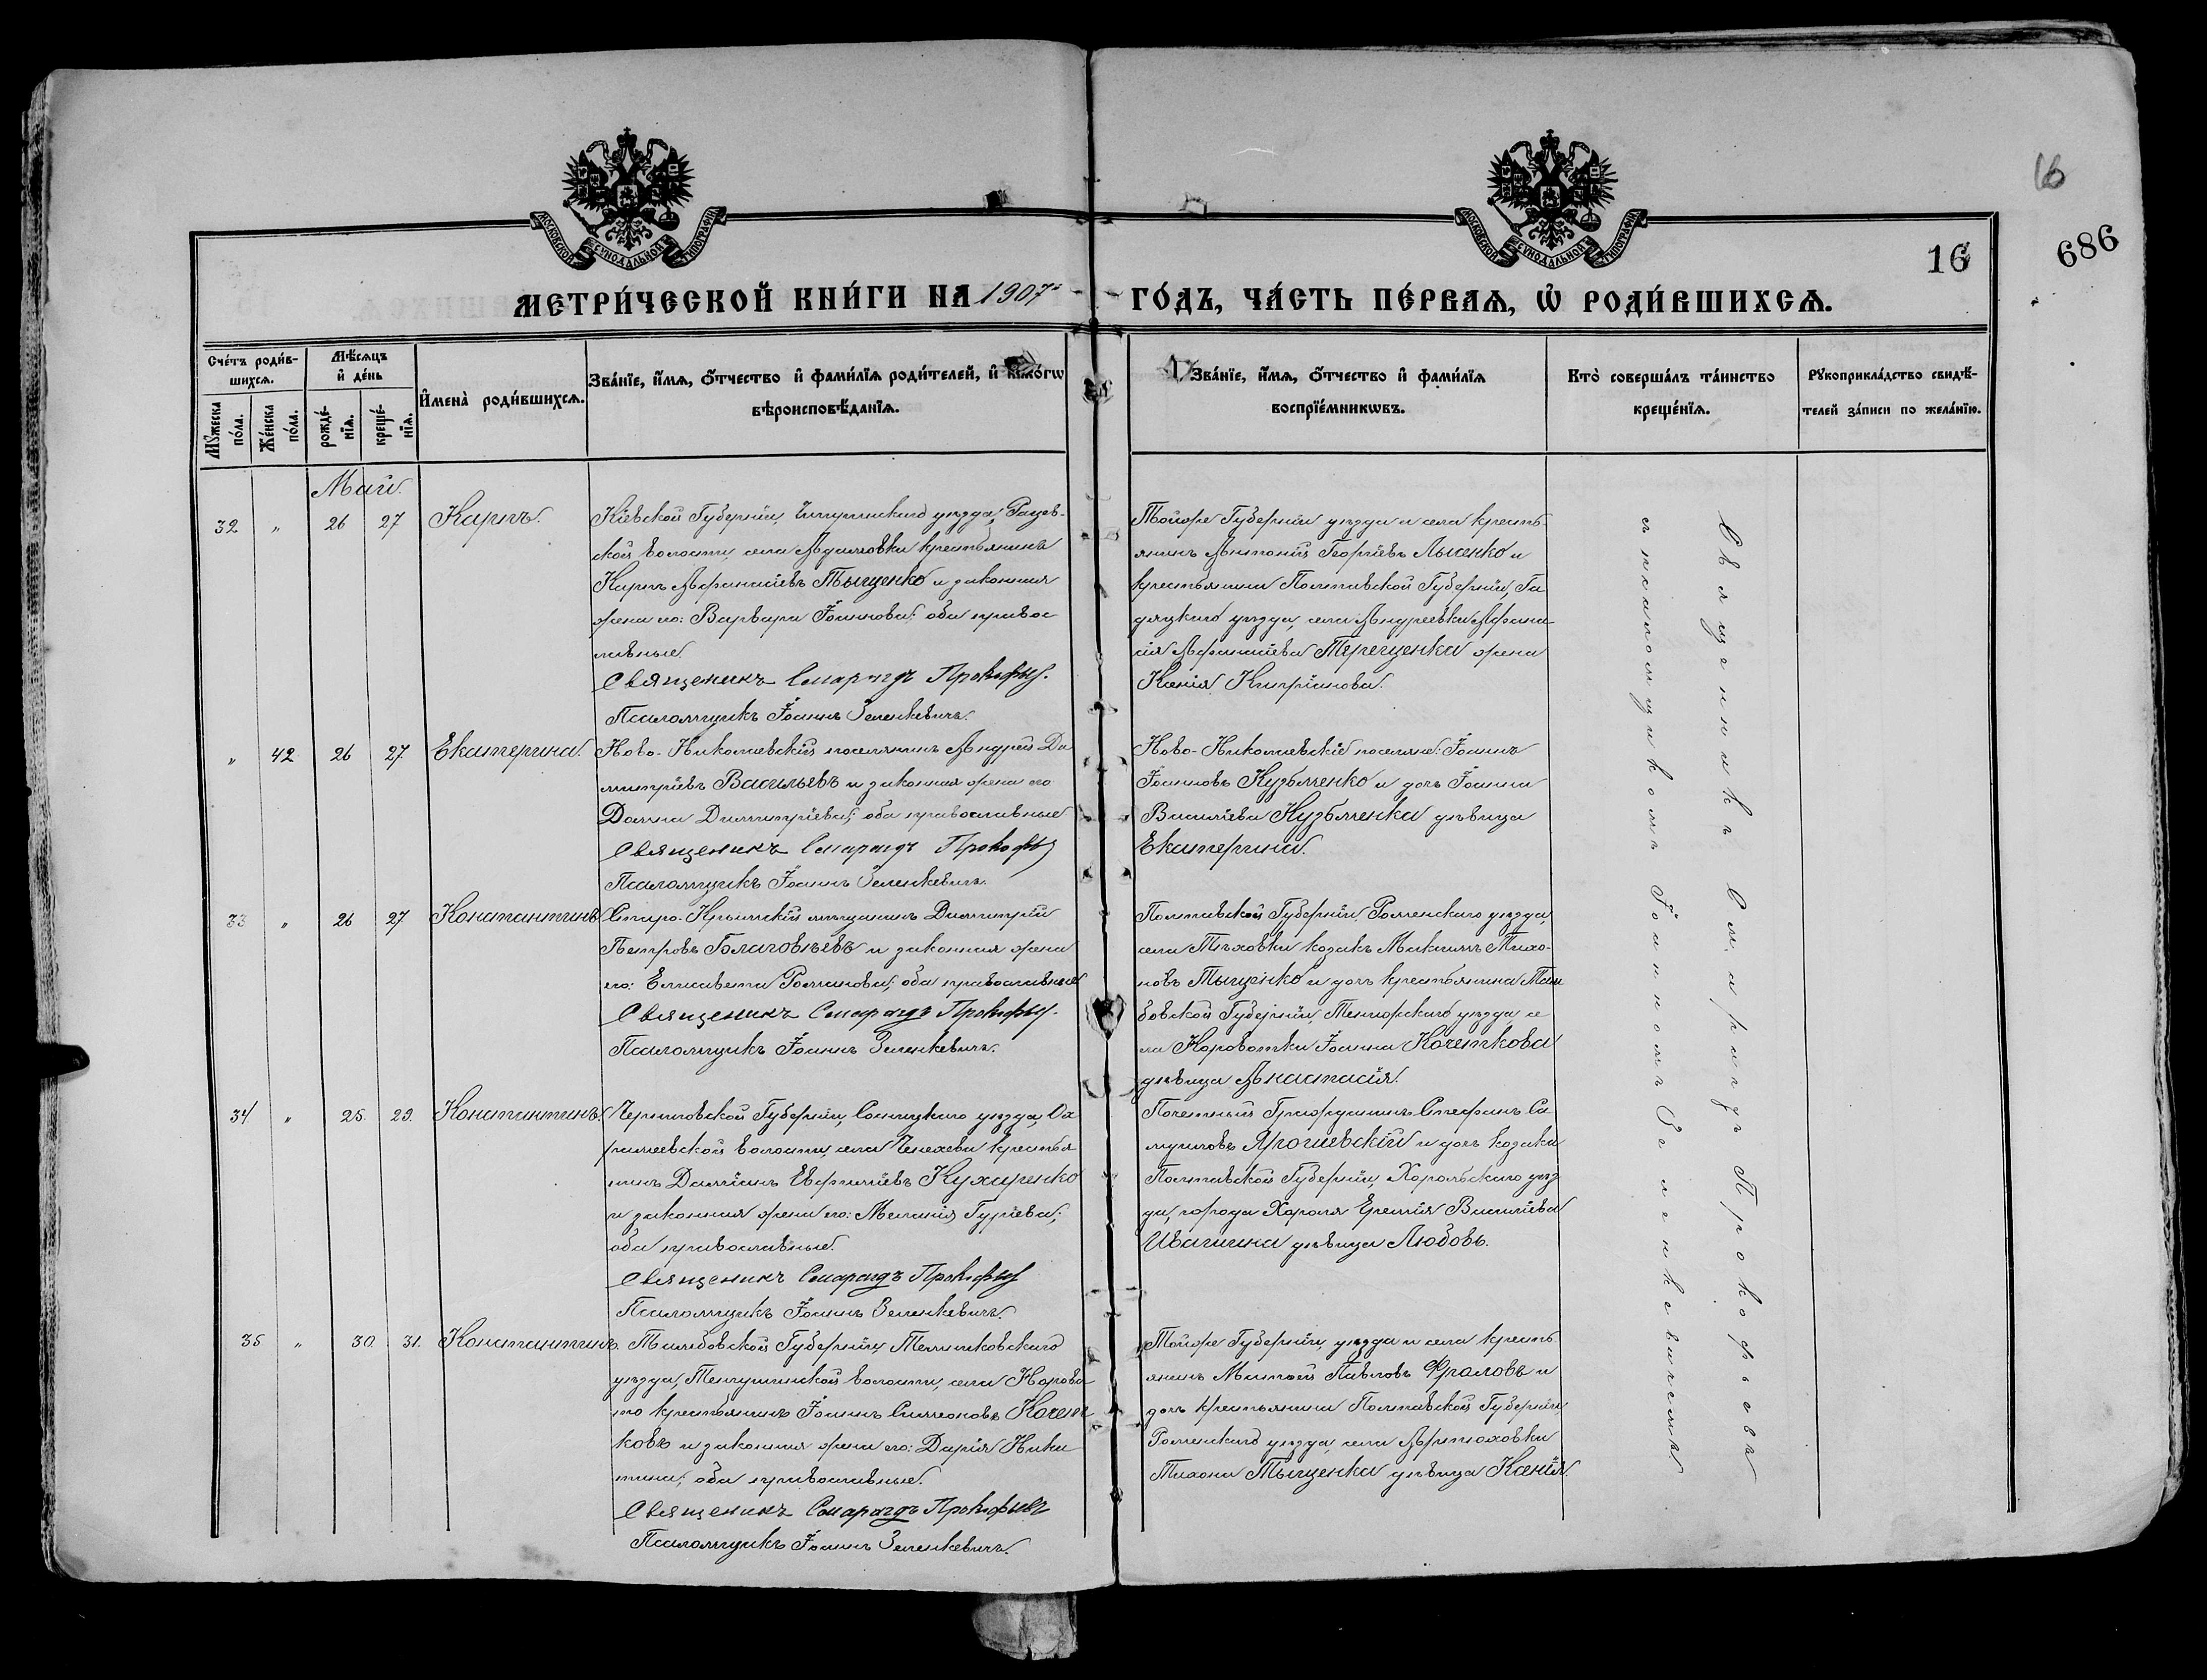 16
686
16
МОСКОВСКОЙ СУНОДАЛЬНОЙ ТИПОГРАФІИ
МОСКОВСКОЙ СУНОДАЛЬНОЙ ТИПОГРАФІИ
МЕТРИ́ЧЕСКОЙ КНИ́ГИ НА 1907й
ГО́ДЪ, ЧА́СТЬ ПЕ́РВАѦ, Ѡ РОДИ́ВШИХСѦ.
Сче́тъ роди́в-
шихсѧ.
Мꙋжеска по́ла.
Же́нска по́ла.
Мѣ́сѧцъ
и҆ де́нь
рожде́-
нїѧ.
креще́-
нїѧ.
И҆мена̀ роди́вшихсѧ.
Зва́нїе, и҆́мѧ, ѻ҆́тчество и҆ фами́лїѧ роди́телей, и҆ како́гѡ
вѣроисповѣ́данїѧ.
Зва́нїе, и҆́мѧ, ѻ҆́тчество и҆ фами́лїѧ
воспрїе́мникѡвъ.
Кто̀ соверша́лъ та́инство
креще́нїѧ.
Рꙋкоприкла́дство свидѣ́-
телей за́писи по жела́нїю.
Май.
32 " 26 27 Карпъ.
Кіевской Губерніи, Чигиринскаго уѣзда,
ской волости, села Адамовки крестьянинъ
Карпъ Афанасіевъ Тыщенко и законная
жена его: Варвара Іоаннова; оба правос
лавные.
Священикъ Смарагдъ Прокофьев
Псаломщикъ Іоаннъ Зеленкевичъ.
Тойже Губерніи уѣзда и села кресть
янинъ Антоній Георгіевъ Лысенко и
крестьянина Полтавской Губерніи, Га
дяцкаго уѣзда, села Андреевки Афана
сія Афанасіева Терещенка жена
Ксенія Кипріанова.
" 42 26 27. Екатерина.
Ново-Николаевскій поселянинъ Андрей Ди
митріевъ Васильевъ и законная жена его
Домна Димитріева; оба православные
Священикъ Смарагдъ Прокофьев
Псаломщикъ Іоаннъ Зеленкевичъ.
Ново-Николаевскіе поселяне: Іоаннъ
Іоанновъ Кузьменко и дочь Іоанна
Василіева Кузьменка дѣвица
Екатерина.
33 " 26 27 Константинъ
Старо-Крымскій мѣщанинъ Димитрій
Петровъ Благовѣевъ и законная жена
его: Елисавета Романова; оба православные
Священикъ Смарагдъ Прокофьев
Псаломщикъ Іоаннъ Зеленкевичъ.
Полтавской Губерніи, Роменскаго уѣзда,
села козакъ Максимъ Тихо-
новъ Тыщенко и дочь крестьянина Там
бовской Губерніи, уѣзда се
ла Коровотки Іоанна Кочеткова
дѣвица Анастасія.
34 " 25. 29. Константинъ.
Черниговской Губерніи, Сосницкаго уѣзда,
волости, села крестья
нинъ Даміанъ Евфиміевъ Кухаренко
и законная жена его: Меланія Гуріева;
оба православные.
Священикъ Смарагдъ Прокофьев
Псаломщикъ Іоаннъ Зеленкевичъ.
Почетный Гражданинъ Стефанъ Са
муиловъ Ярошевскій и дочь козака
Полтавской Губерніи, Хорольскаго уѣз
да, города Хорола Ереміи Василіева
Ивагина дѣвица Любовь.
35 " 30. 31. Константинъ.
Тамбовской Губерніи, Темниковскаго
уѣзда, волости, села Корова
то крестьянинъ Іоаннъ Симеоновъ Кочет
ковъ и законная жена его: Дарія Ники
тина; оба православные.
Священикъ Смарагдъ Прокофьевъ
Псаломщикъ Іоаннъ Зеленкевичъ.
Тойже Губерніи, уѣзда и села кресть
янинъ Матвей Павловъ Фроловъ и
дочь крестьянина Полтавской Губерніи,
Роменскаго уѣзда, села
Тихона Тыщенка дѣвица Ксенія.
Священникъ Смарагдъ Прокофьевъ
съ псаломщикомъ Іоанномъ Зеленкевичемъ